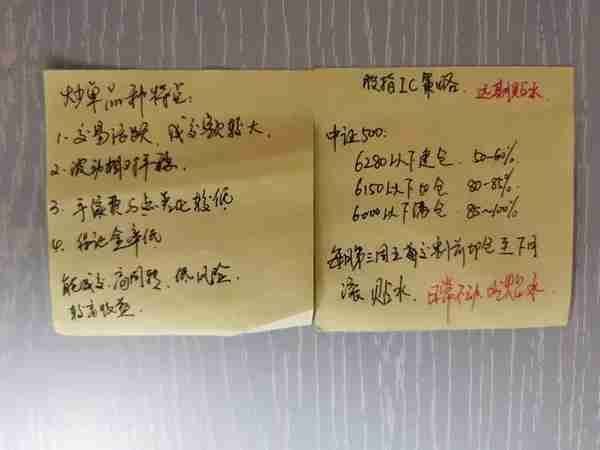 炒单品种特点:
1. 交易活跃、成交额较大.
2. 波动相对平稳.
3. 手续费与点差比较低
4. 保证金率低
能成交、高周转、低风险、
较高收益.
股指IC策略. 远期贴水.
中证500:
6280以下建仓. 50-60%.
6150以下加仓 80-85%.
6000以下满仓. 85~100%
每月第三周五前交割前切仓至下月
滚贴水. 日常不动 吃贴水.